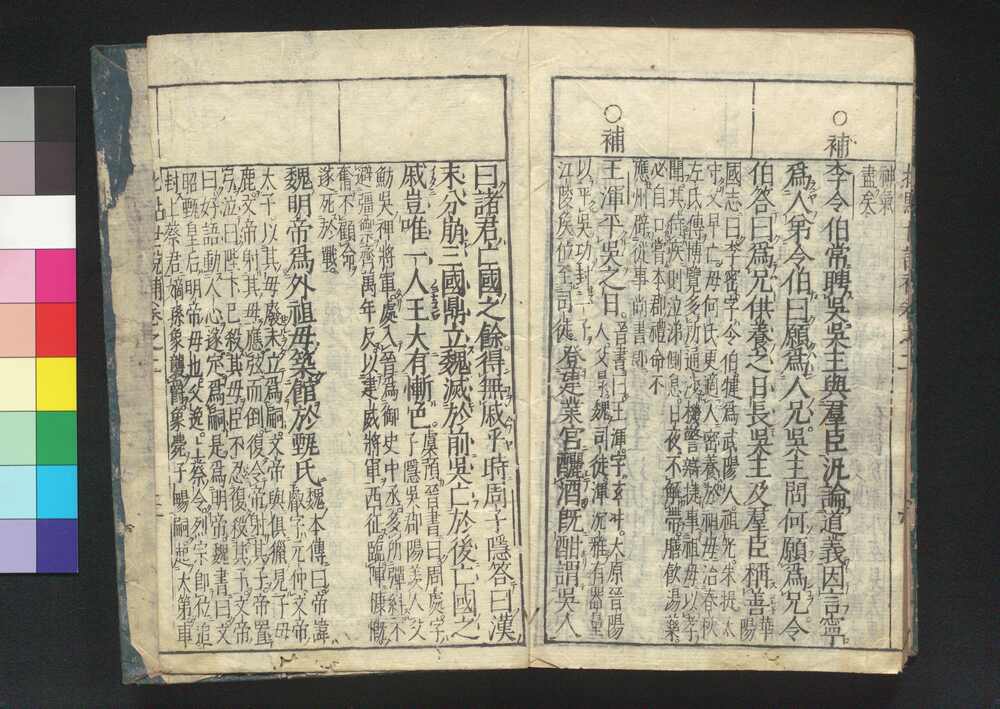 神氣
盡矣
○補
李令伯常聘吳吳主與羣臣汎論道義因言寧
爲人弟令伯曰願爲人兄吳主問何願爲兄令
伯答曰爲兄供養之日長吳主及羣臣稱善華陽
國志曰李密字令伯犍爲武陽人祖光朱提太
守父早亡母何氏更適人密養於祖母治春秋
左氏傳博覽多所通涉機警辯捷事祖母以孝
聞其侍疾則泣涕側息日夜不解帶膳飲湯藥
必自口嘗本郡禮命不
應州辟從事尚書郎
○補
王渾平吳之日晉書曰王渾字玄冲太原晉陽
人父昶魏司徒渾沉雅有器量
以平吳功封二子
江陵侯位至司徒登建業宮釃酒旣酣謂吳人
曰諸君亡國之餘得無戚乎時周子隱答曰漢
末分崩三國鼎立魏滅於前吳亡於後亡國之
戚豈唯一人王大有慚色虞預晉書曰周處字
子隱吳郡陽羨人父
魴吳神將軍處入晉爲御史中丞多所彈糾不
避彊禦齊萬年反以建威將軍西征臨陣慷慨
奮不顧命
遂死於戰
魏明帝爲外祖母築館於甄氏魏本傳曰帝諱
叡字元仲文帝
太子以其母廢未立爲嗣文帝與俱獵見子母
鹿文帝射其母應弦而倒復令帝射其子帝置
弓泣曰陛下已殺其母臣不忍復殺其子文帝
曰好語動人心遂定爲嗣是爲明帝魏書曰文
昭甄皇后明帝母也父逸上蔡令烈宗即位追
封上蔡君嫡孫象襲爵象薨子暢嗣起大第車